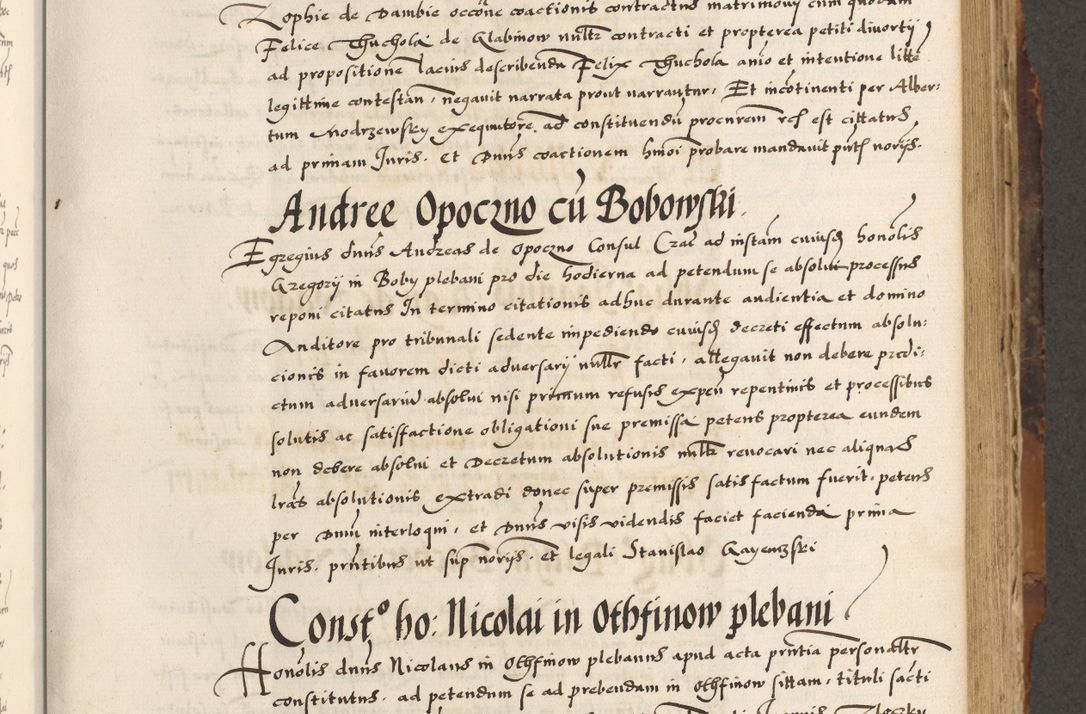 Zophie de Dambie occõne coactionis contractus matrimonij cum quodam
Felice Thuchola de Glabinow nullr contracti et propterea petiti divortij
ad propositionem lacius describendã Felix Thuchola animo et intentione litte
legittime contestan, negavit narrata prout narrantur, Et incõtinenti per Alber:
tum Modrzewsky exequutorẽ ad constituendũ procurem rcs est cittatus
ad primam Juris. et Dnus coactionem hmoi probare mandavit pntibus norijs.
Andree Opoczno cũ Bobowski.
Egregius dnus Andreas de Opoczno Consul Crac ad instam cuiusq honolis
Gregorij in Boby plebani pro die hodierna ad petendum se absolui processus
reponi citatus In termino citationis adhuc durante audientia et domino
Auditore pro tribunali sedente impediendo cuiusq decreti effectum absolu:
cionis in favorem dicti adversarij nullr facti, allegavit non debere predi:
ctum adversariũ absolui nisi primum refusis expen repentinis et processibus
solutis ac satisfactione obligationi sue premissa petens propterea eundem
non debere absolui et Decretum absolutionis nullr revocari nec aliquas
lras absolutionis extradi donec super premissis satisfactum fuerit, petens
per Dnum interloqui, et Dnus visis videndis faciet facienda prima
Juris. pntibus ut sup norijs. et legali Stanislao Gayewski
Const.º ho: Nicolai in Othfinow plebani
Honolis dnus Nicolaus in Othfinow plebanus apud acta pntia personaltr
constitutus, ad petendum se ad prebendam in Othfinow sittam, tituli sancti